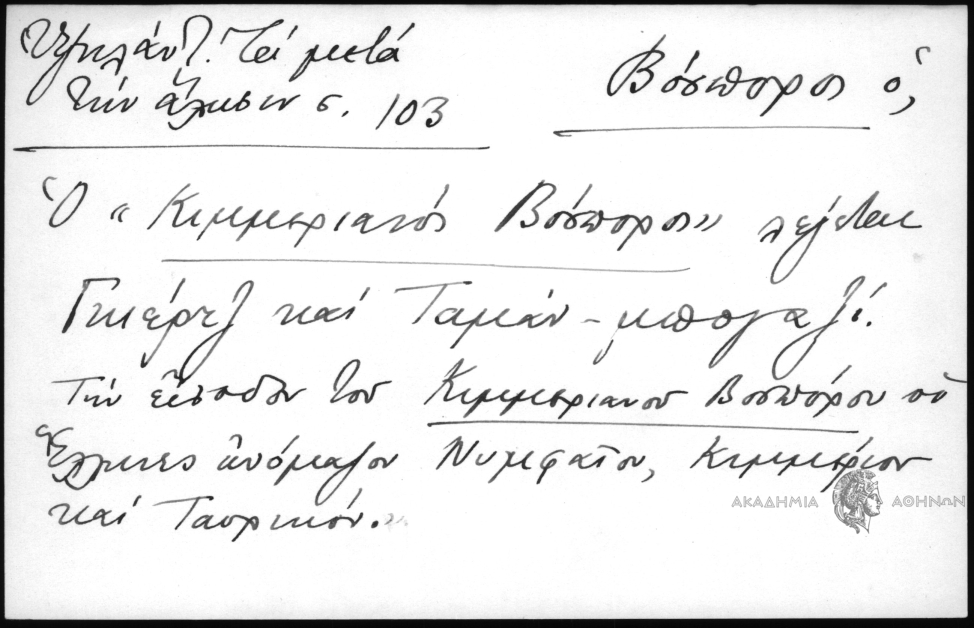 Ὑψηλάντ. Τά μετά
τήν ἅλωσιν σ. 103
Βόσπορος ὁ,
Ὁ « Κιμμεριανός Βόσπορος» λέγεται
Γκέρτζ καί Ταμάν-μπογαζί.
Τήν εἴσοδον τοῦ Κιμμεριανοῦ Βοσπόρου οἱ
Ἕλληνες ὠνόμαζον Νυμφαῖον, Κιμμέριον
καί Ταυρικόν.»
ΑΚΑΔΗΜΙΑ ΑΘΗΝΩΝ